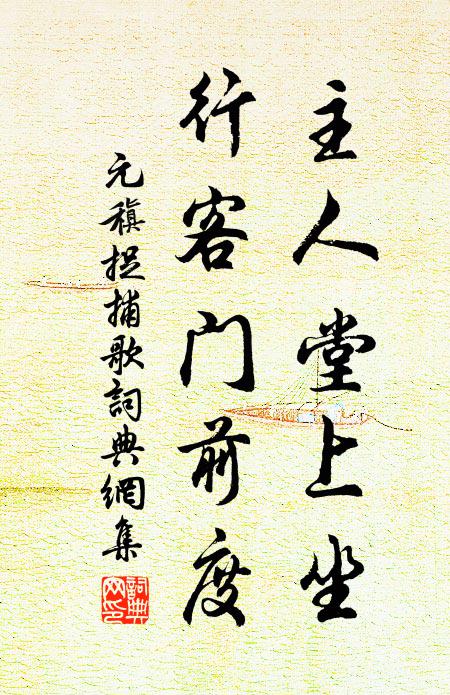 主人堂上坐
行客门前度
元稹捉捕歌詞典網集
詞典网印